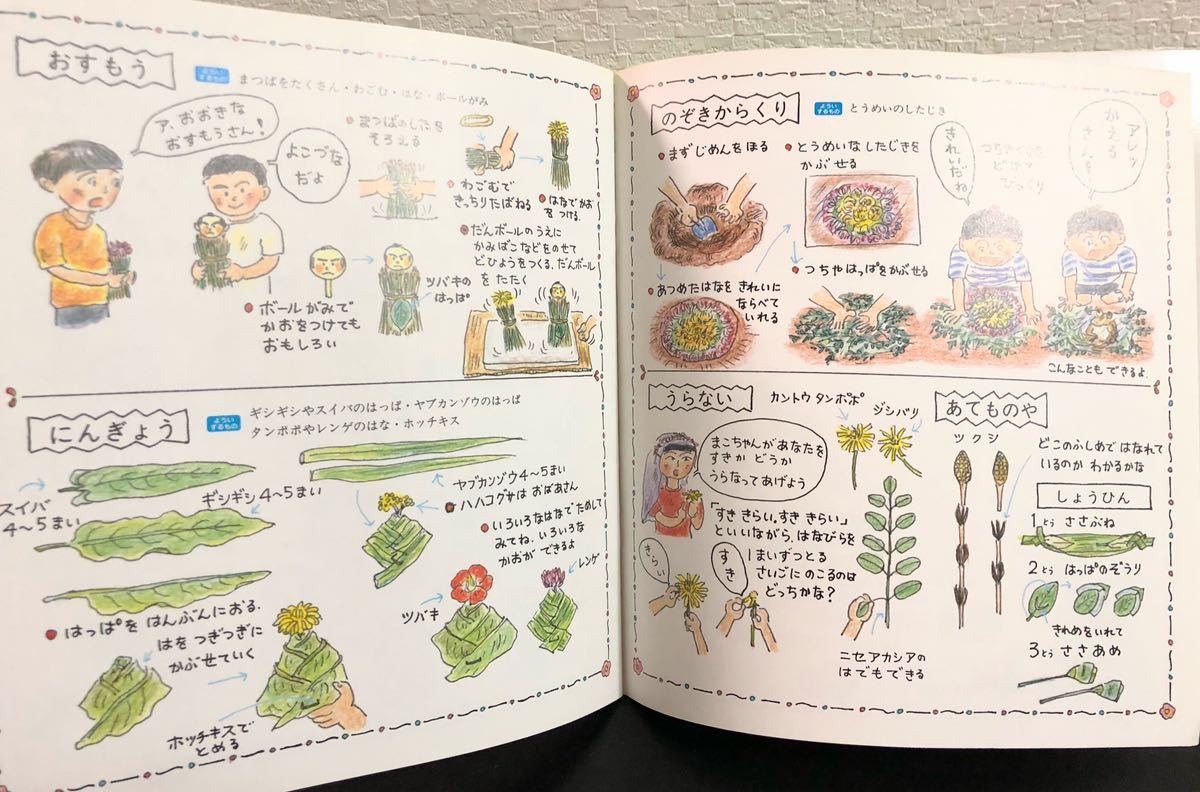 おすもう
よういするもの
まつばをたくさん・わごむ・はな・ボールがみ
ア、おおきな
おすもうさん!
よこづな
だよ
まつばのしたを
そろえる
わごむで
きっちりたばねる
はなでかお
をつける.
ボールがみで
かおをつけても
おもしろい
ツバキの
はっぱ
だんボールのうえに
かみばこなどをのせて
どひょうをつくる.だんボール
をたたく
にんぎょう
よういするもの
ギシギシやスイバのはっぱ・ヤブカンゾウのはっぱ
タンポポやレンゲのはな・ホッチキス
スイバ
4〜5まい
ギシギシ4〜5まい
ヤブカンゾウ4〜5まい
ハハコグサはおばあさん
いろいろなはなでためして
みてね.いろいろな
かおができるよ
はっぱをはんぶんにおる.
はをつぎつぎに
かぶせていく
ホッチキスで
とめる
ツバキ
レンゲ
のぞきからくり
よういするもの
とうめいのしたじき
まずじめんをほる
とうめいなしたじきを
かぶせる
あつめたはなをきれいに
ならべて
いれる
つちやはっぱをかぶせる
きれいだね
アレッ
かえる
さんだ!
こんなこともできるよ.
うらない
カントウタンポポ
ジシバリ
まこちゃんがあなたを
すきかどうか
うらなってあげよう
「すききらい。すききらい」
といいながら、はなびらを
1まいずつとる
さいごにのこるのは
どっちかな?
きらい
すき
ニセアカシアの
はでもできる
あてものや
ツクシ
どこのふしめではなれて
いるのかわかるかな
しょうひん
1とう ささぶね
2とう はっぱのぞうり
きれめをいれて
3とう ささあめ